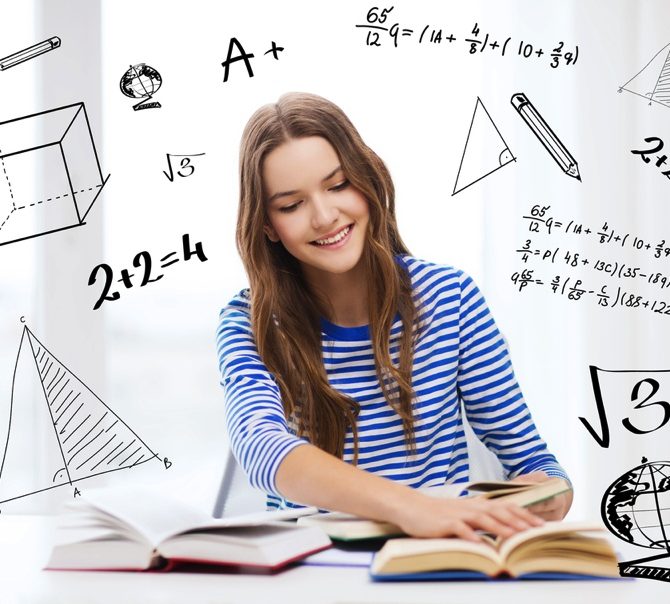 65/12 q = (1A + 4/8) + ( 10 + 2/3 q)
A +
√3
2+2
65/12 q = (1A + 4/8) + ( 10 + 2/3
3/4 = P( 48 + 13C)(35-18q
q 65/P = 3/4 (P/65 - C/13)(88+122
2+2=4
C
√3
B
A